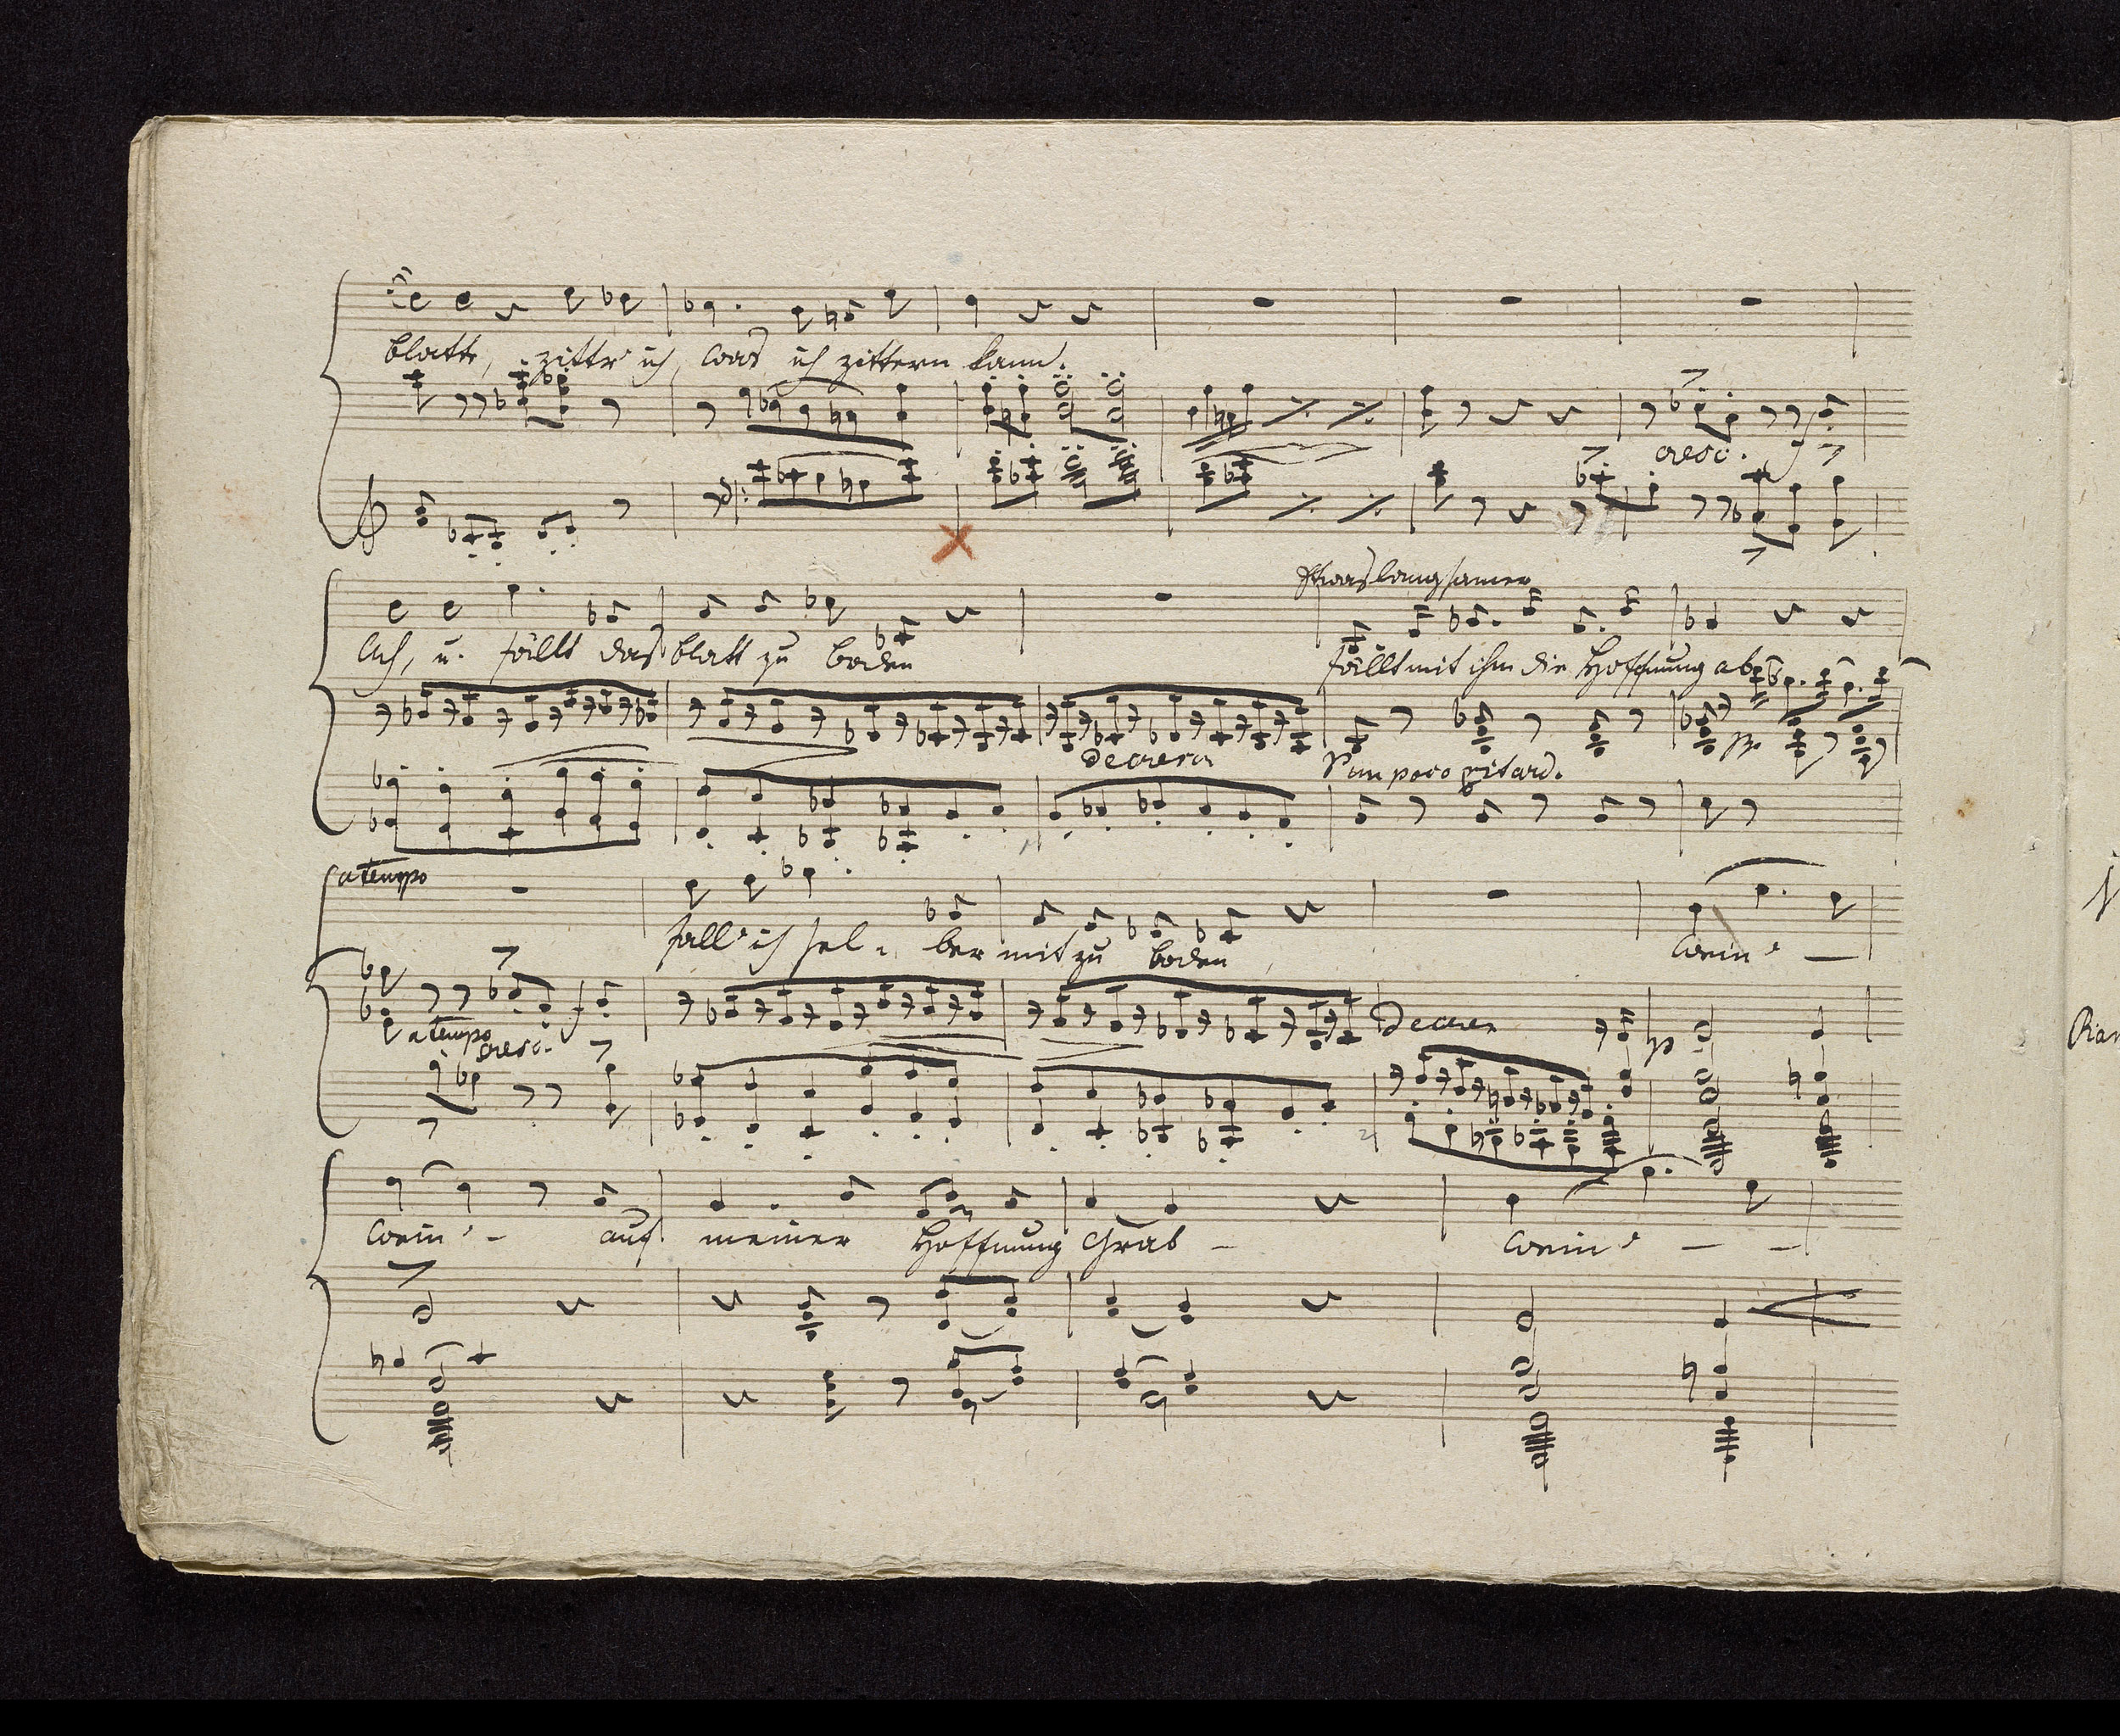 blatte, zittr' ich, was ich zittern kann.
cresc.
Etwas langsamer
Ach, u. fällt das blatt zu boden
fällt mit ihm die Hoffnung ab
decresc
pp
un poco ritard.
a tempo
fall' ich sel- ber mit zu boden
wein' —
a tempo
cresc.
f
decres
fp
wein' - auf meiner Hoffnung Grab -
wein' — -